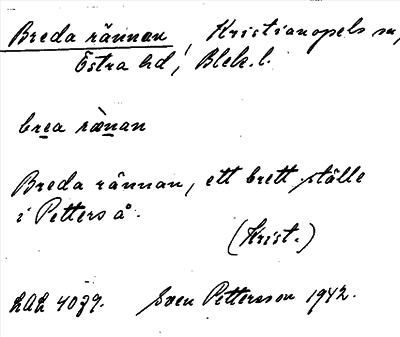 Breda rännan, Kristianopels sn,
Östra hd, Blek. l.
brea rænan
Breda rännan, ett brett ställe
i Petters å.
(Krist.)
LAL 4039. Sven Pettersson 1942.